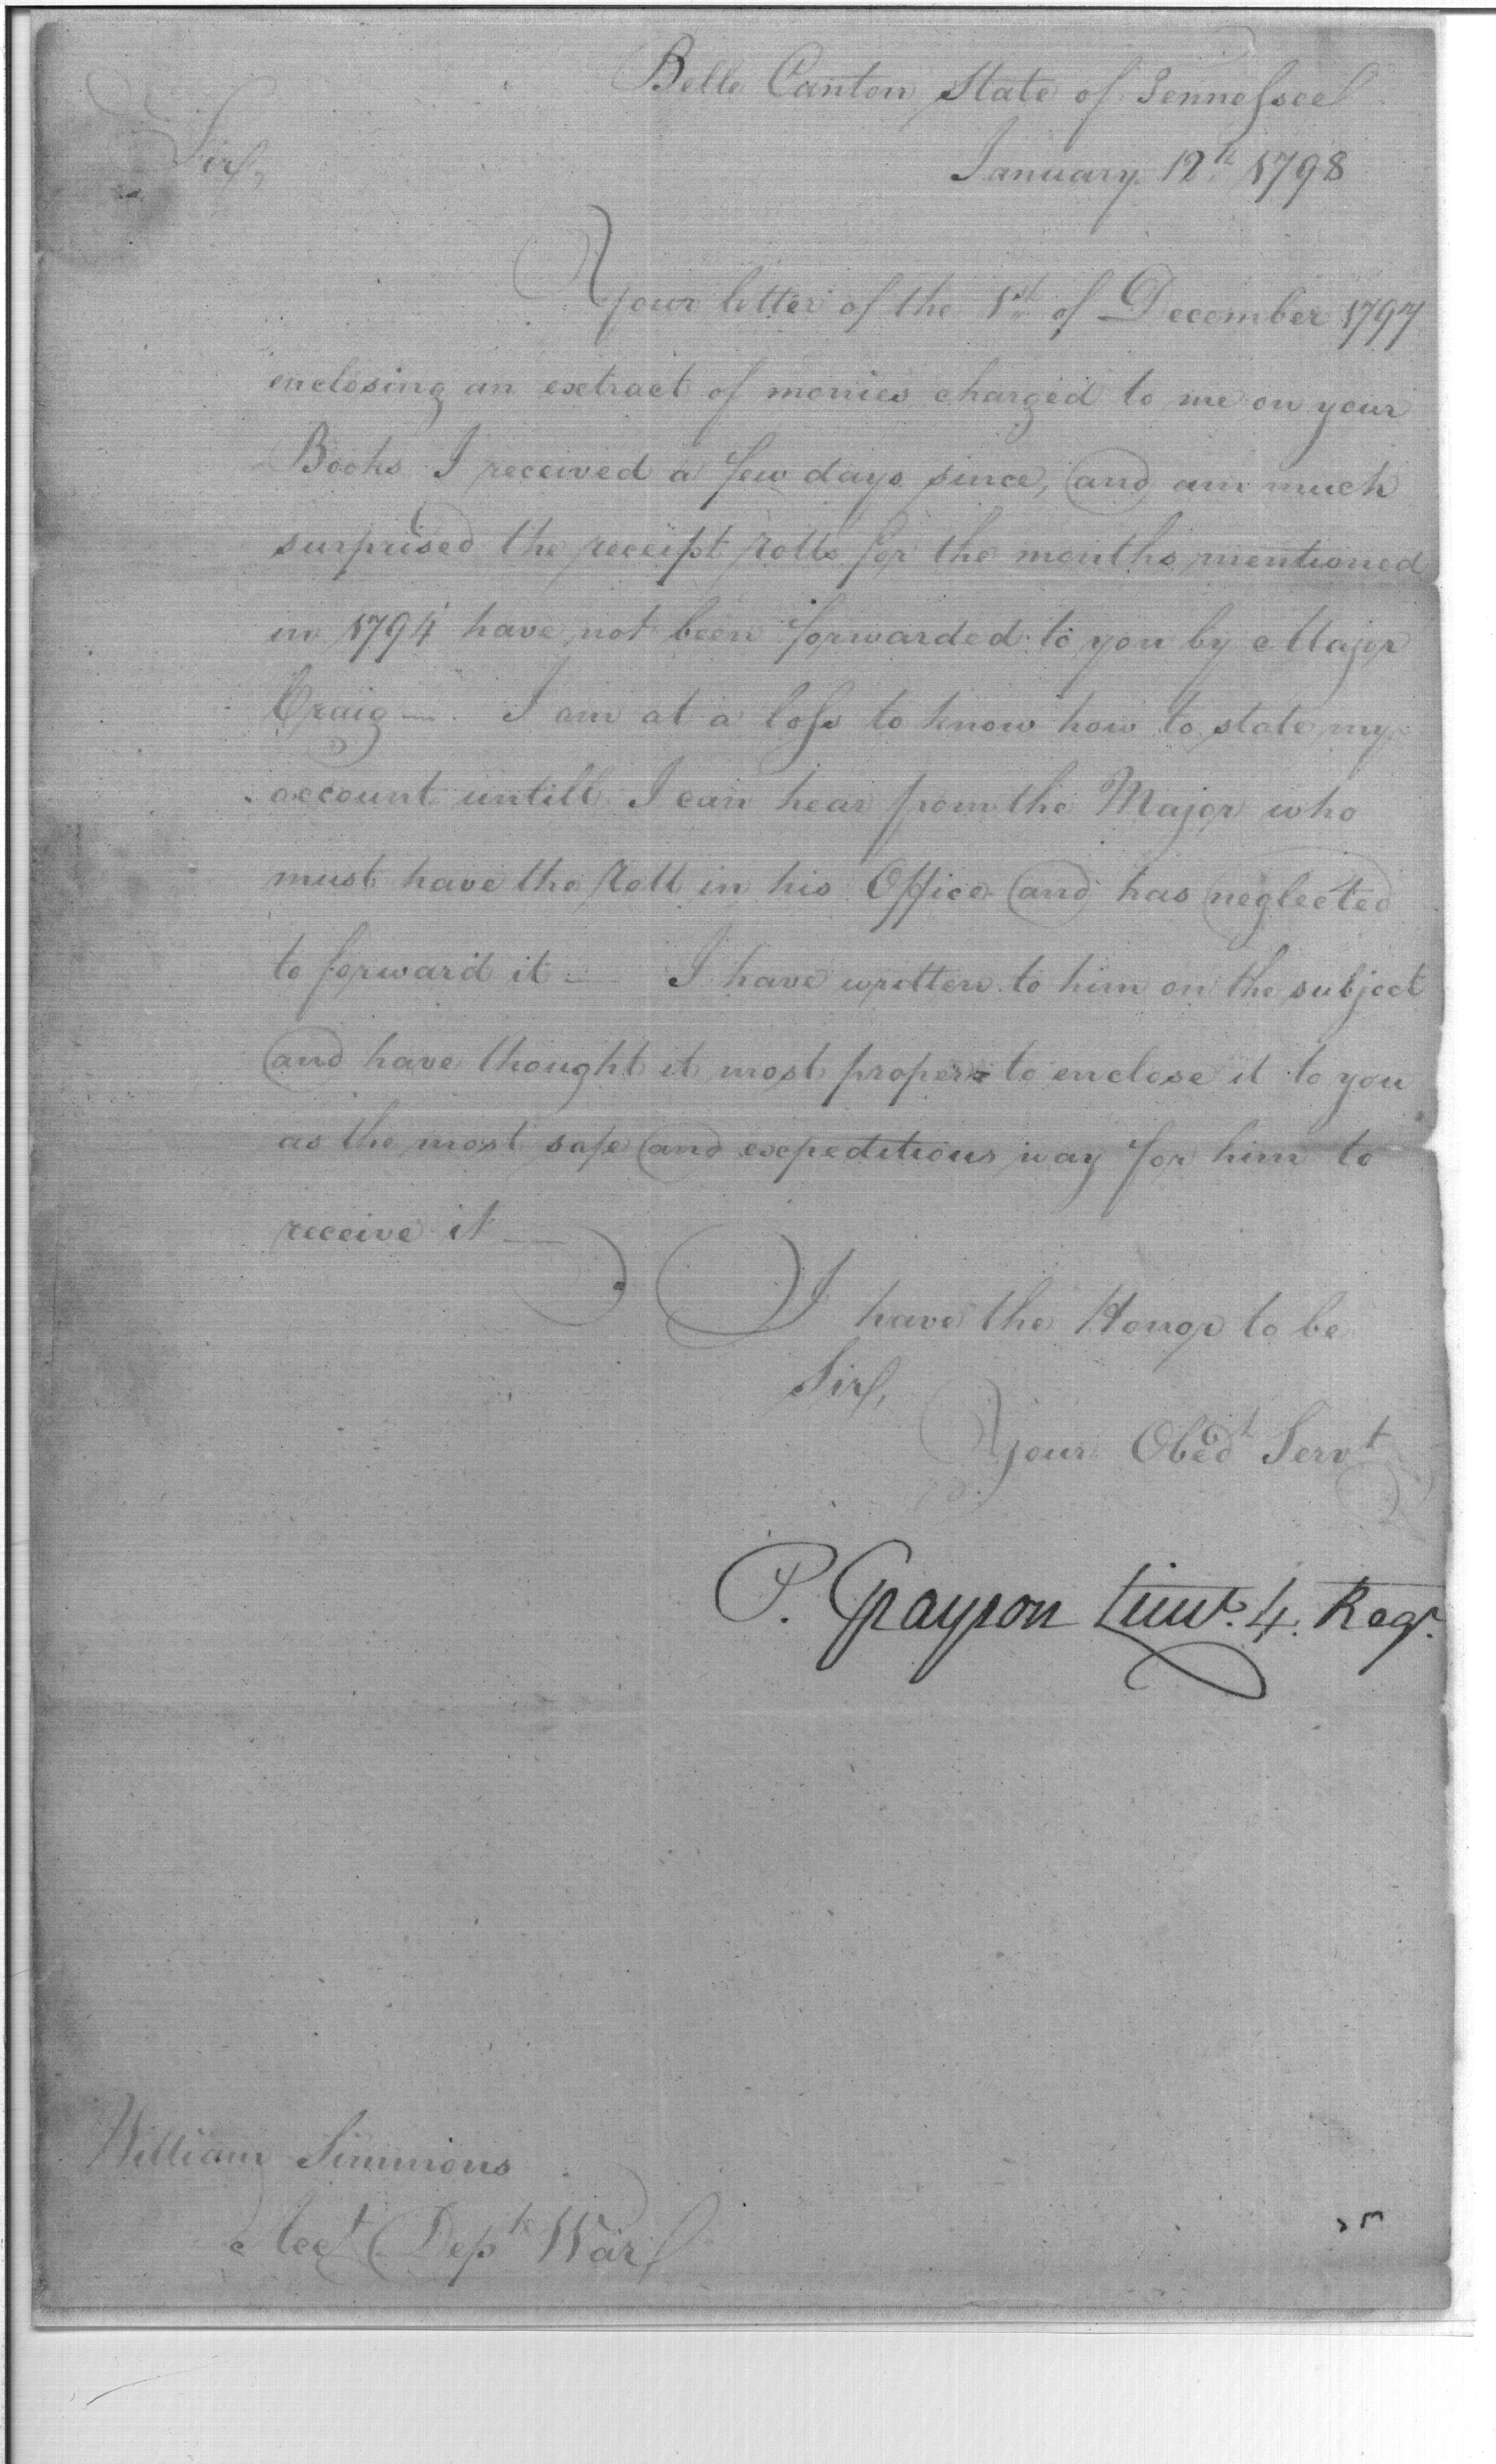 Belle Canton State of Tennessee
January 12th 1798
Sir,
Your letter of the 1st of December 1797
enclosing an extract of monies charged to me on your
Books I received a few days since, and am much
surprised the receipt rolls for the months mentioned
in 1794 have not been forwarded to you by Major
Craig — I am at a loss to know how to state my
account untill I can hear from the Major who
must have the Roll in his Office and has neglected
to forward it — I have written to him on the subject
and have thought it most proper to enclose it to you
as the most safe and expeditious way for him to
receive it —
I have the Honor to be
Sir,
Your Obedt Servt
P. Grayson Lieut. 4. Regt.
William Simmons
Acct Dept War